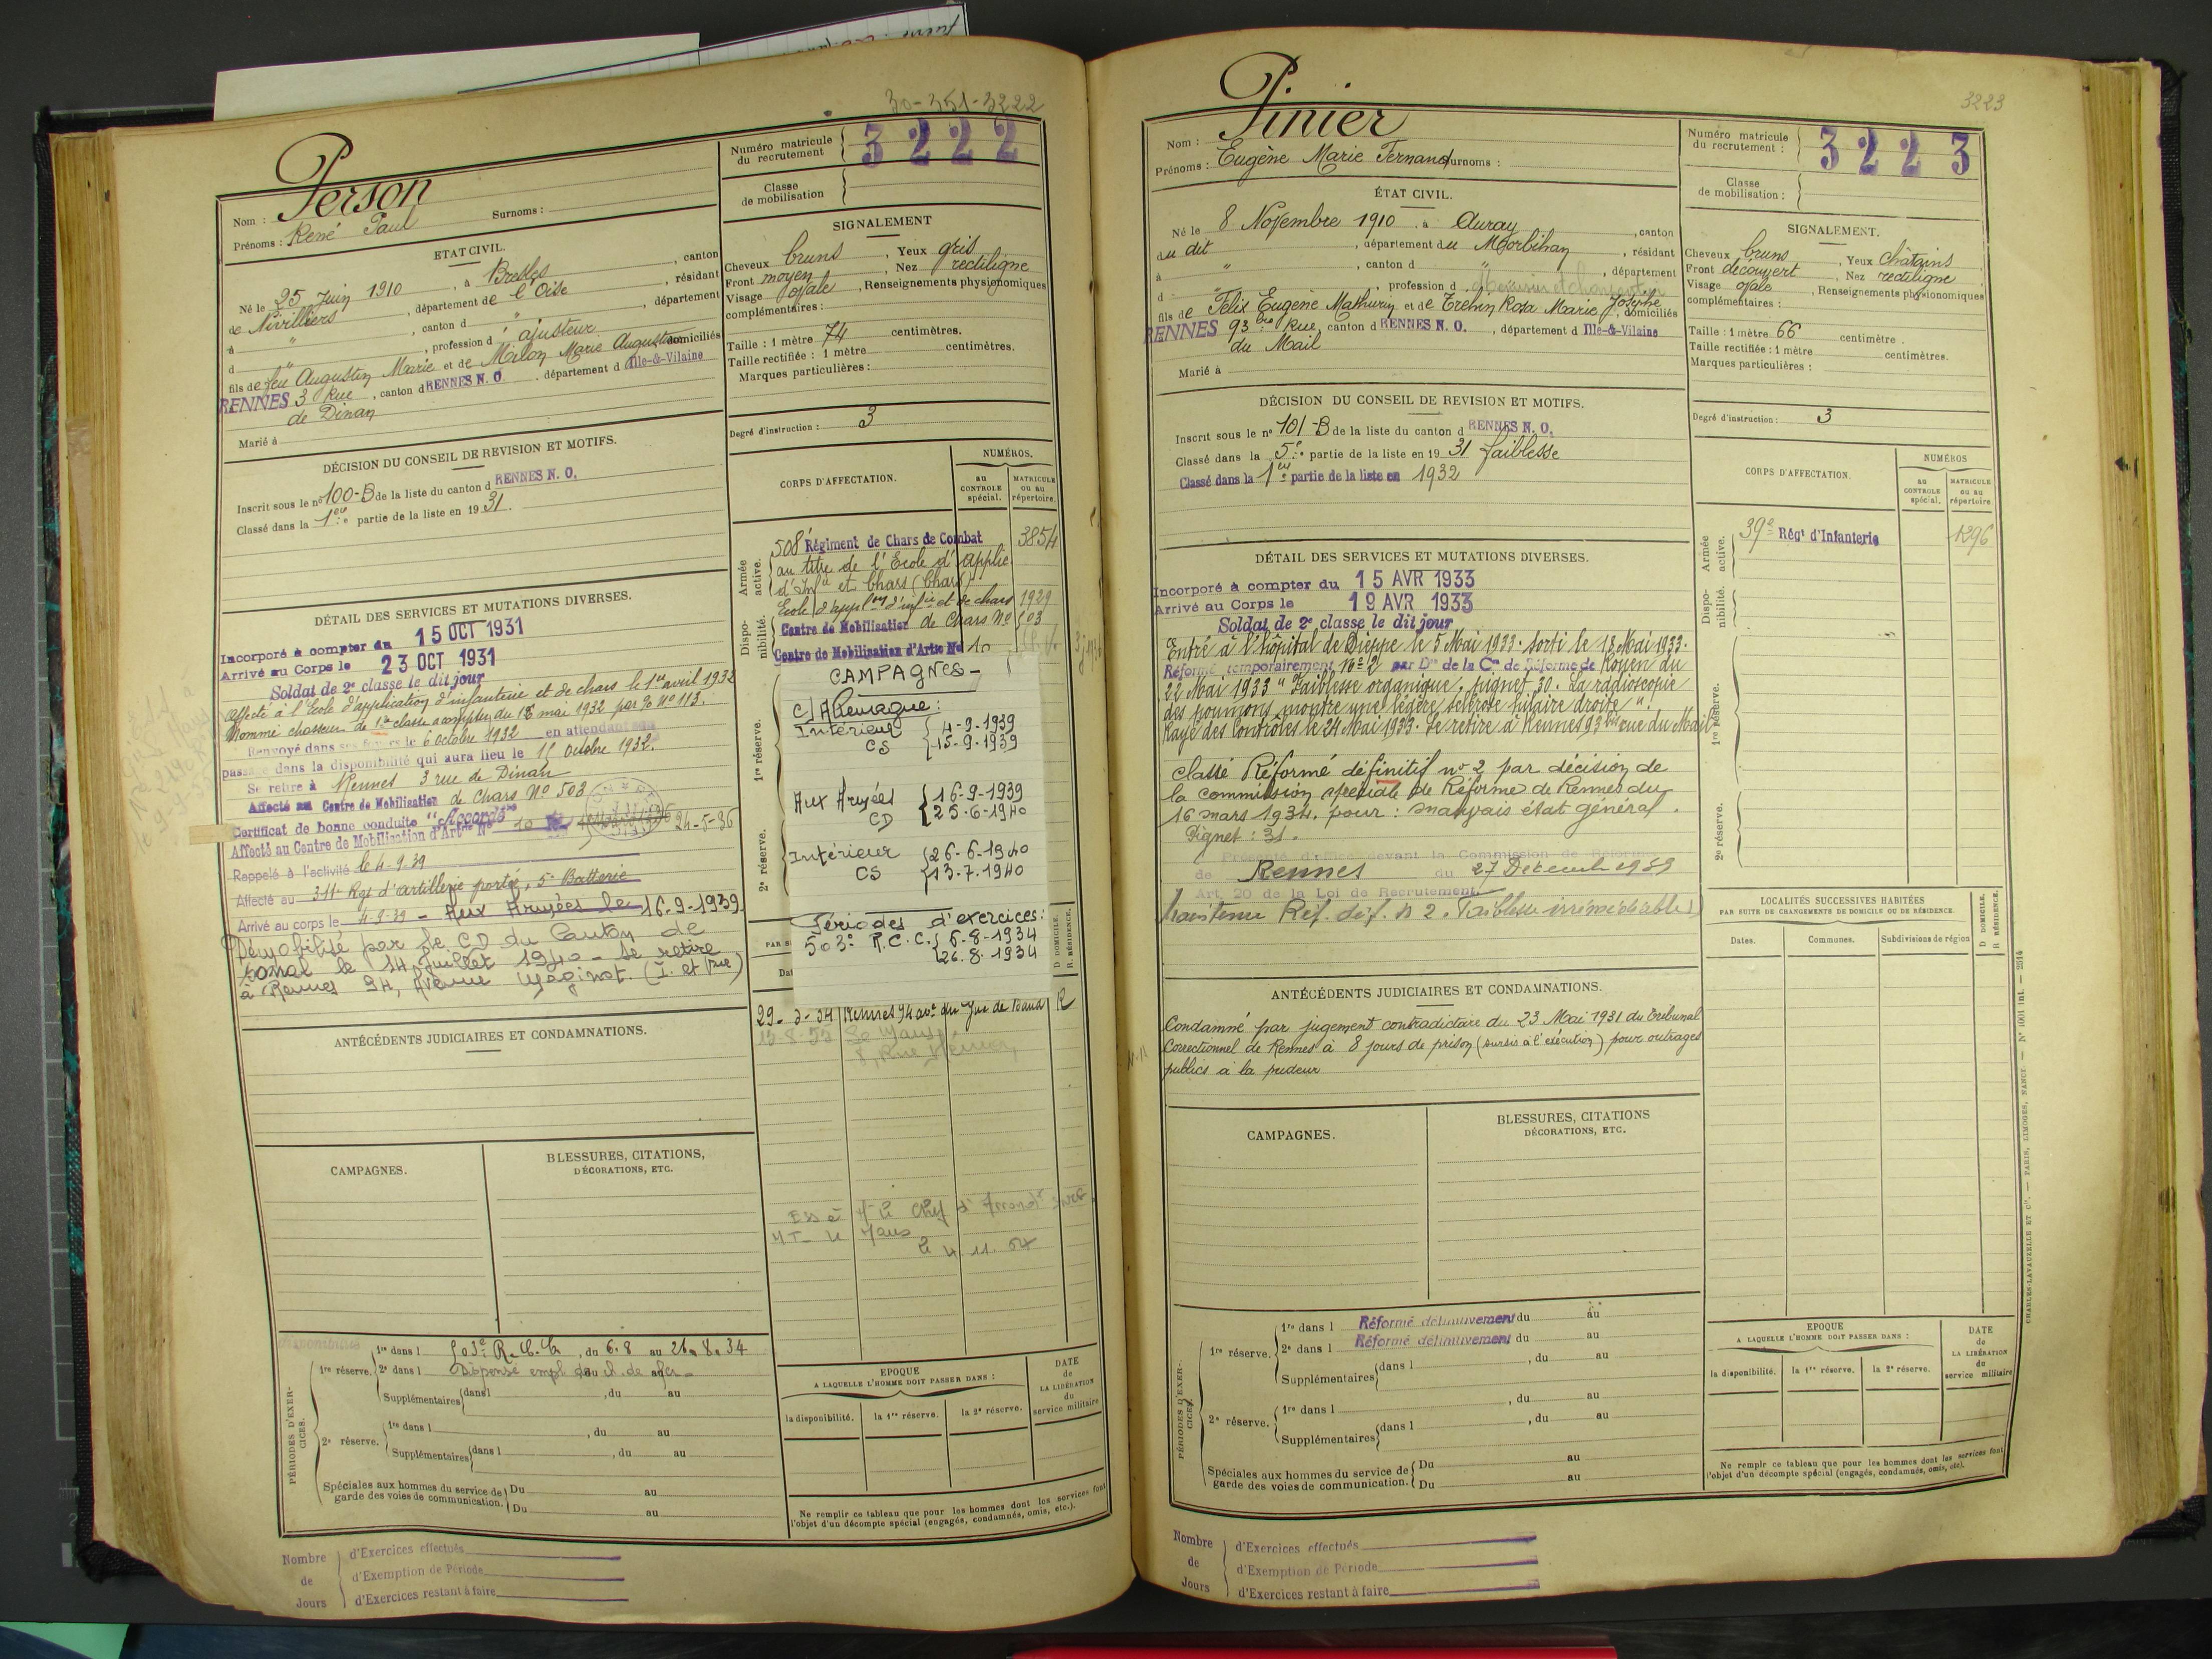 30-351-3222
Nom : Person
Prénoms : René Paul Surnoms :
Numéro matricule du recrutement 3222
Classe de mobilisation
ETAT CIVIL.
Né le 25 Juin 1910, à Bresles, canton
de Nivillers, département de l'Oise, résidant
à " , canton d " , département
d " , profession d' ajusteur
fils de feu Augustin Marie et de Milon Marie Augustine domiciliés
RENNES 3 Rue, canton d RENNES N. O., département d Ille-&-Vilaine
de Dinan
Marié à
SIGNALEMENT
Cheveux bruns, Yeux gris
Front moyen, Nez rectiligne
Visage ovale, Renseignements physionomiques
complémentaires :
Taille : 1 mètre 74 centimètres.
Taille rectifiée : 1 mètre centimètres.
Marques particulières :
Degré d'instruction : 3
DÉCISION DU CONSEIL DE REVISION ET MOTIFS.
Inscrit sous le n° 100-B de la liste du canton d RENNES N. O.
Classé dans la 1ère partie de la liste en 19 31.
DÉTAIL DES SERVICES ET MUTATIONS DIVERSES.
Incorporé à compter du 15 OCT 1931
Arrivé au Corps le 23 OCT 1931
Soldat de 2e classe le dit jour
Affecté à l'Ecole d'application d'infanterie et de chars le 1er avril 1932
Nommé chasseur de 1ère classe a compter du 16 mai 1932 par % N° 113.
Renvoyé dans ses foyers le 6 octobre 1932 en attendant son
passage dans la disponibilité qui aura lieu le 15 Octobre 1932.
Se retire à Rennes 3 rue de Dinan
Affecté au Centre de Mobilisation de Chars No 503
Certificat de bonne conduite "Accordé"
Affecté au Centre de Mobilisation d'Artie N° 10 24-5-36
Rappelé à l'activité le 4-9-39
Affecté au 311e Rgt d'artillerie portée, 5e Batterie
Arrivé au corps le 4-9-39 - Aux Armées le 16-9-1939
Démobilisé par le CD du Canton de
le 14 Juillet 1940 - se retire
à Rennes 94, Avenue (I. et Vne)
CORPS D'AFFECTATION.
NUMÉROS.
au CONTROLE spécial.
MATRICULE ou au répertoire.
Armée active.
508e Régiment de Chars de Combat 3854
au titre de l'Ecole d'Applic.
d'Infie et Chars (Chars)
Ecole d'applon d'infie et de chars 1929
Dispo- nibilité.
Centre de Mobilisation de Chars No 503
Centre de Mobilisation d'Artie No 10
1re réserve.
2e réserve.
CAMPAGNES -
C/ Allemagne :
Intérieur CS { 4-9-1939 15-9-1939
Aux Armées CD { 16-9-1939 25-6-1940
Intérieur CS { 26-6-1940 13-7-1940
Périodes d'exercices :
503e R.C.C. { 6-8-1934 26.8.1934
D DOMICILE. R. RÉSIDENCE.
29-3-34 Rennes 94 ave du Gue de Baud R
ANTÉCÉDENTS JUDICIAIRES ET CONDAMNATIONS.
CAMPAGNES.
BLESSURES, CITATIONS, DÉCORATIONS, ETC.
4 11. 54
PÉRIODES D'EXERCICES.
1re réserve. 1re dans l 503e R.C.C., du 6.8 au 26.8.34
2e dans l Dispensé empl. du ch. de fer
Supplémentaires dans l , du au
2e réserve. 1re dans l , du au
Supplémentaires dans l , du au
Spéciales aux hommes du service de garde des voies de communication. Du au
Du au
EPOQUE A LAQUELLE L'HOMME DOIT PASSER DANS :
la disponibilité. la 1re réserve. la 2e réserve.
DATE de LA LIBÉRATION du service militaire
Ne remplir ce tableau que pour les hommes dont les services font
l'objet d'un décompte spécial (engagés, condamnés, omis, etc.).
Nombre de Jours
d'Exercices effectués
d'Exemption de Période
d'Exercices restant à faire
3223
Nom : Pinier
Prénoms : Eugène Marie Fernand Surnoms :
Numéro matricule du recrutement : 3223
Classe de mobilisation :
ÉTAT CIVIL.
Né le 8 Novembre 1910, à Auray, canton
du dit, département du Morbihan, résidant
à " , canton d " , département
d " , profession d Menuisier et charpentier
fils de Félix Eugène Mathurin et de Tréhin Rosa Marie Josèphe, domiciliés
RENNES 93 bis Rue, canton d RENNES N. O., département d Ille-&-Vilaine
du Mail
Marié à
SIGNALEMENT.
Cheveux bruns, Yeux châtains
Front découvert, Nez rectiligne
Visage ovale, Renseignements physionomiques
complémentaires :
Taille : 1 mètre 66 centimètre.
Taille rectifiée : 1 mètre centimètres.
Marques particulières :
Degré d'instruction : 3
DÉCISION DU CONSEIL DE REVISION ET MOTIFS.
Inscrit sous le n° 101-B de la liste du canton d RENNES N. O.
Classé dans la 5e partie de la liste en 19 31 faiblesse
Classé dans la 1ère partie de la liste en 1932
DÉTAIL DES SERVICES ET MUTATIONS DIVERSES.
Incorporé à compter du 15 AVR 1933
Arrivé au Corps le 19 AVR 1933
Soldat de 2e classe le dit jour
Entré à l'hôpital de Dieppe le 5 Mai 1933. Sorti le 13 Mai 1933.
Réformé temporairement No 2 par Don de la Con de Réforme de Rouen du
22 Mai 1933 "Faiblesse organique, pignet 30. La radioscopie
des poumons montre une légère sclérose hilaire droite".
Rayé des Contrôles le 24 Mai 1933. Se retire à Rennes 93 bis rue du Mail
Classé Réformé définitif no 2 par décision de
la commission spéciale de Réforme de Rennes du
16 mars 1934. pour : mauvais état général.
Pignet : 31.
Présenté d'office devant la Commission de Réforme
de Rennes du 27 Décembre 1939
Art. 20 de la Loi de Recrutement.
Maintenu Réf. déf. n 2. Faiblesse irrémédiable
CORPS D'AFFECTATION.
NUMÉROS
au CONTROLE spécial.
MATRICULE ou au répertoire
Armée active.
39e Régt d'Infanterie 1296
Dispo- nibilité.
1re réserve.
2e réserve.
LOCALITÉS SUCCESSIVES HABITÉES
PAR SUITE DE CHANGEMENTS DE DOMICILE OU DE RÉSIDENCE.
Dates. Communes. Subdivisions de région D DOMICILE. R RÉSIDENCE.
ANTÉCÉDENTS JUDICIAIRES ET CONDAMNATIONS.
Condamné par jugement contradictoire du 23 Mai 1931 du Tribunal
Correctionnel de Rennes à 8 jours de prison (sursis à l'exécution) pour outrages
publics à la pudeur
CAMPAGNES.
BLESSURES, CITATIONS DÉCORATIONS, ETC.
PÉRIODES D'EXERCICES.
1re réserve. 1re dans l Réformé définitivement du au
2e dans l Réformé définitivement du au
Supplémentaires dans l , du au
2e réserve. 1re dans l , du au
Supplémentaires dans l , du au
Spéciales aux hommes du service de garde des voies de communication. Du au
Du au
EPOQUE A LAQUELLE L'HOMME DOIT PASSER DANS :
la disponibilité. la 1re réserve. la 2e réserve.
DATE de LA LIBÉRATION du service militaire
Ne remplir ce tableau que pour les hommes dont les services font
l'objet d'un décompte spécial (engagés, condamnés, omis, etc).
CHARLES-LAVAUZELLE ET Cie. — PARIS, LIMOGES, NANCY. — N° 1001 int. — 2514
Nombre de Jours
d'Exercices effectués
d'Exemption de Période
d'Exercices restant à faire